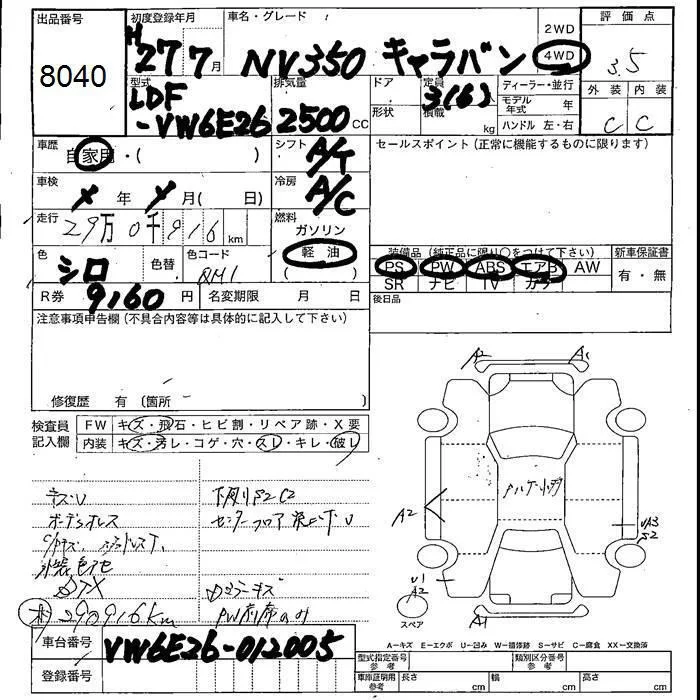 出品番号 初度登録年月 車名・グレード 2WD 評価点
8040 H27 7月 NV350 キャラバン 4WD 3.5
型式 排気量 ドア 定員 ディーラー・並行 外装 内装
LDF 3(6) モデル年式 年
-VW6E26 2500CC 形状 積載 kg ハンドル 左・右 C C
車歴 自家用・( ) シフト A/T セールスポイント (正常に機能するものに限ります)
車検 メ年 メ月( 日) 冷房 A/C
走行 29万0千916km 燃料
ガソリン
軽油
( )
色 シロ 色替 色コード QM1 装備品 (純正品に限り○をつけて下さい) 新車保証書
PS PW ABS エアB AW 有・無
SR ナビ TV カワ
R券 9160円 名変期限 月 日 後日品
注意事項申告欄 (不具合内容等は具体的に記入して下さい)
修復歴 有 (箇所 )
検査員記入欄 FW キズ・飛石・ヒビ割・リペア跡・X要
内装 キズ・汚レ・コゲ・穴・スレ・キレ・破レ
キズ・U
ボデーオレス
290916km
下廻りS2C2
PW前席のみ
A2 A1
A2
UA3
S2
U1
A2
A1
スペア
A=キズ E=エクボ U=凹み W=補修跡 S=サビ C=腐食 XX=交換済
車台番号 VW6E26-012005
登録番号
型式指定番号 参考 類別区分番号 参考
車庫証明用 参考 長さ cm 幅 cm 高さ cm